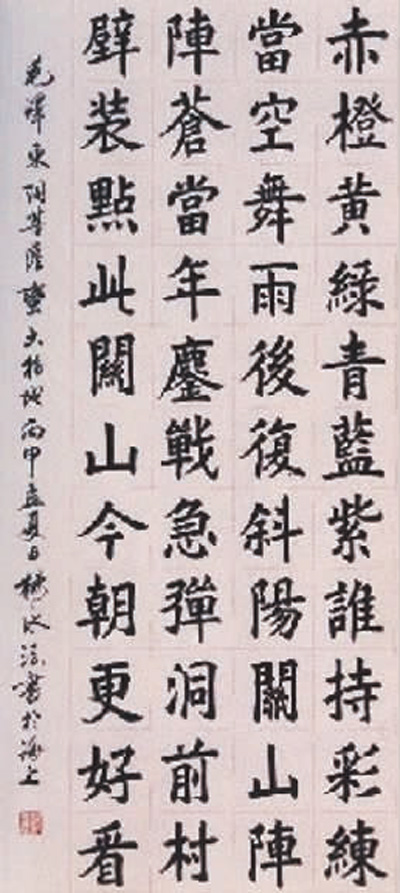 赤橙黄緑青藍紫誰持彩練
當空舞雨後復斜陽關山陣
陣蒼當年鏖戰急彈洞前村
壁装點此關山今朝更好看
毛澤東詞菩薩蠻大柏地丙申孟夏日書於海上